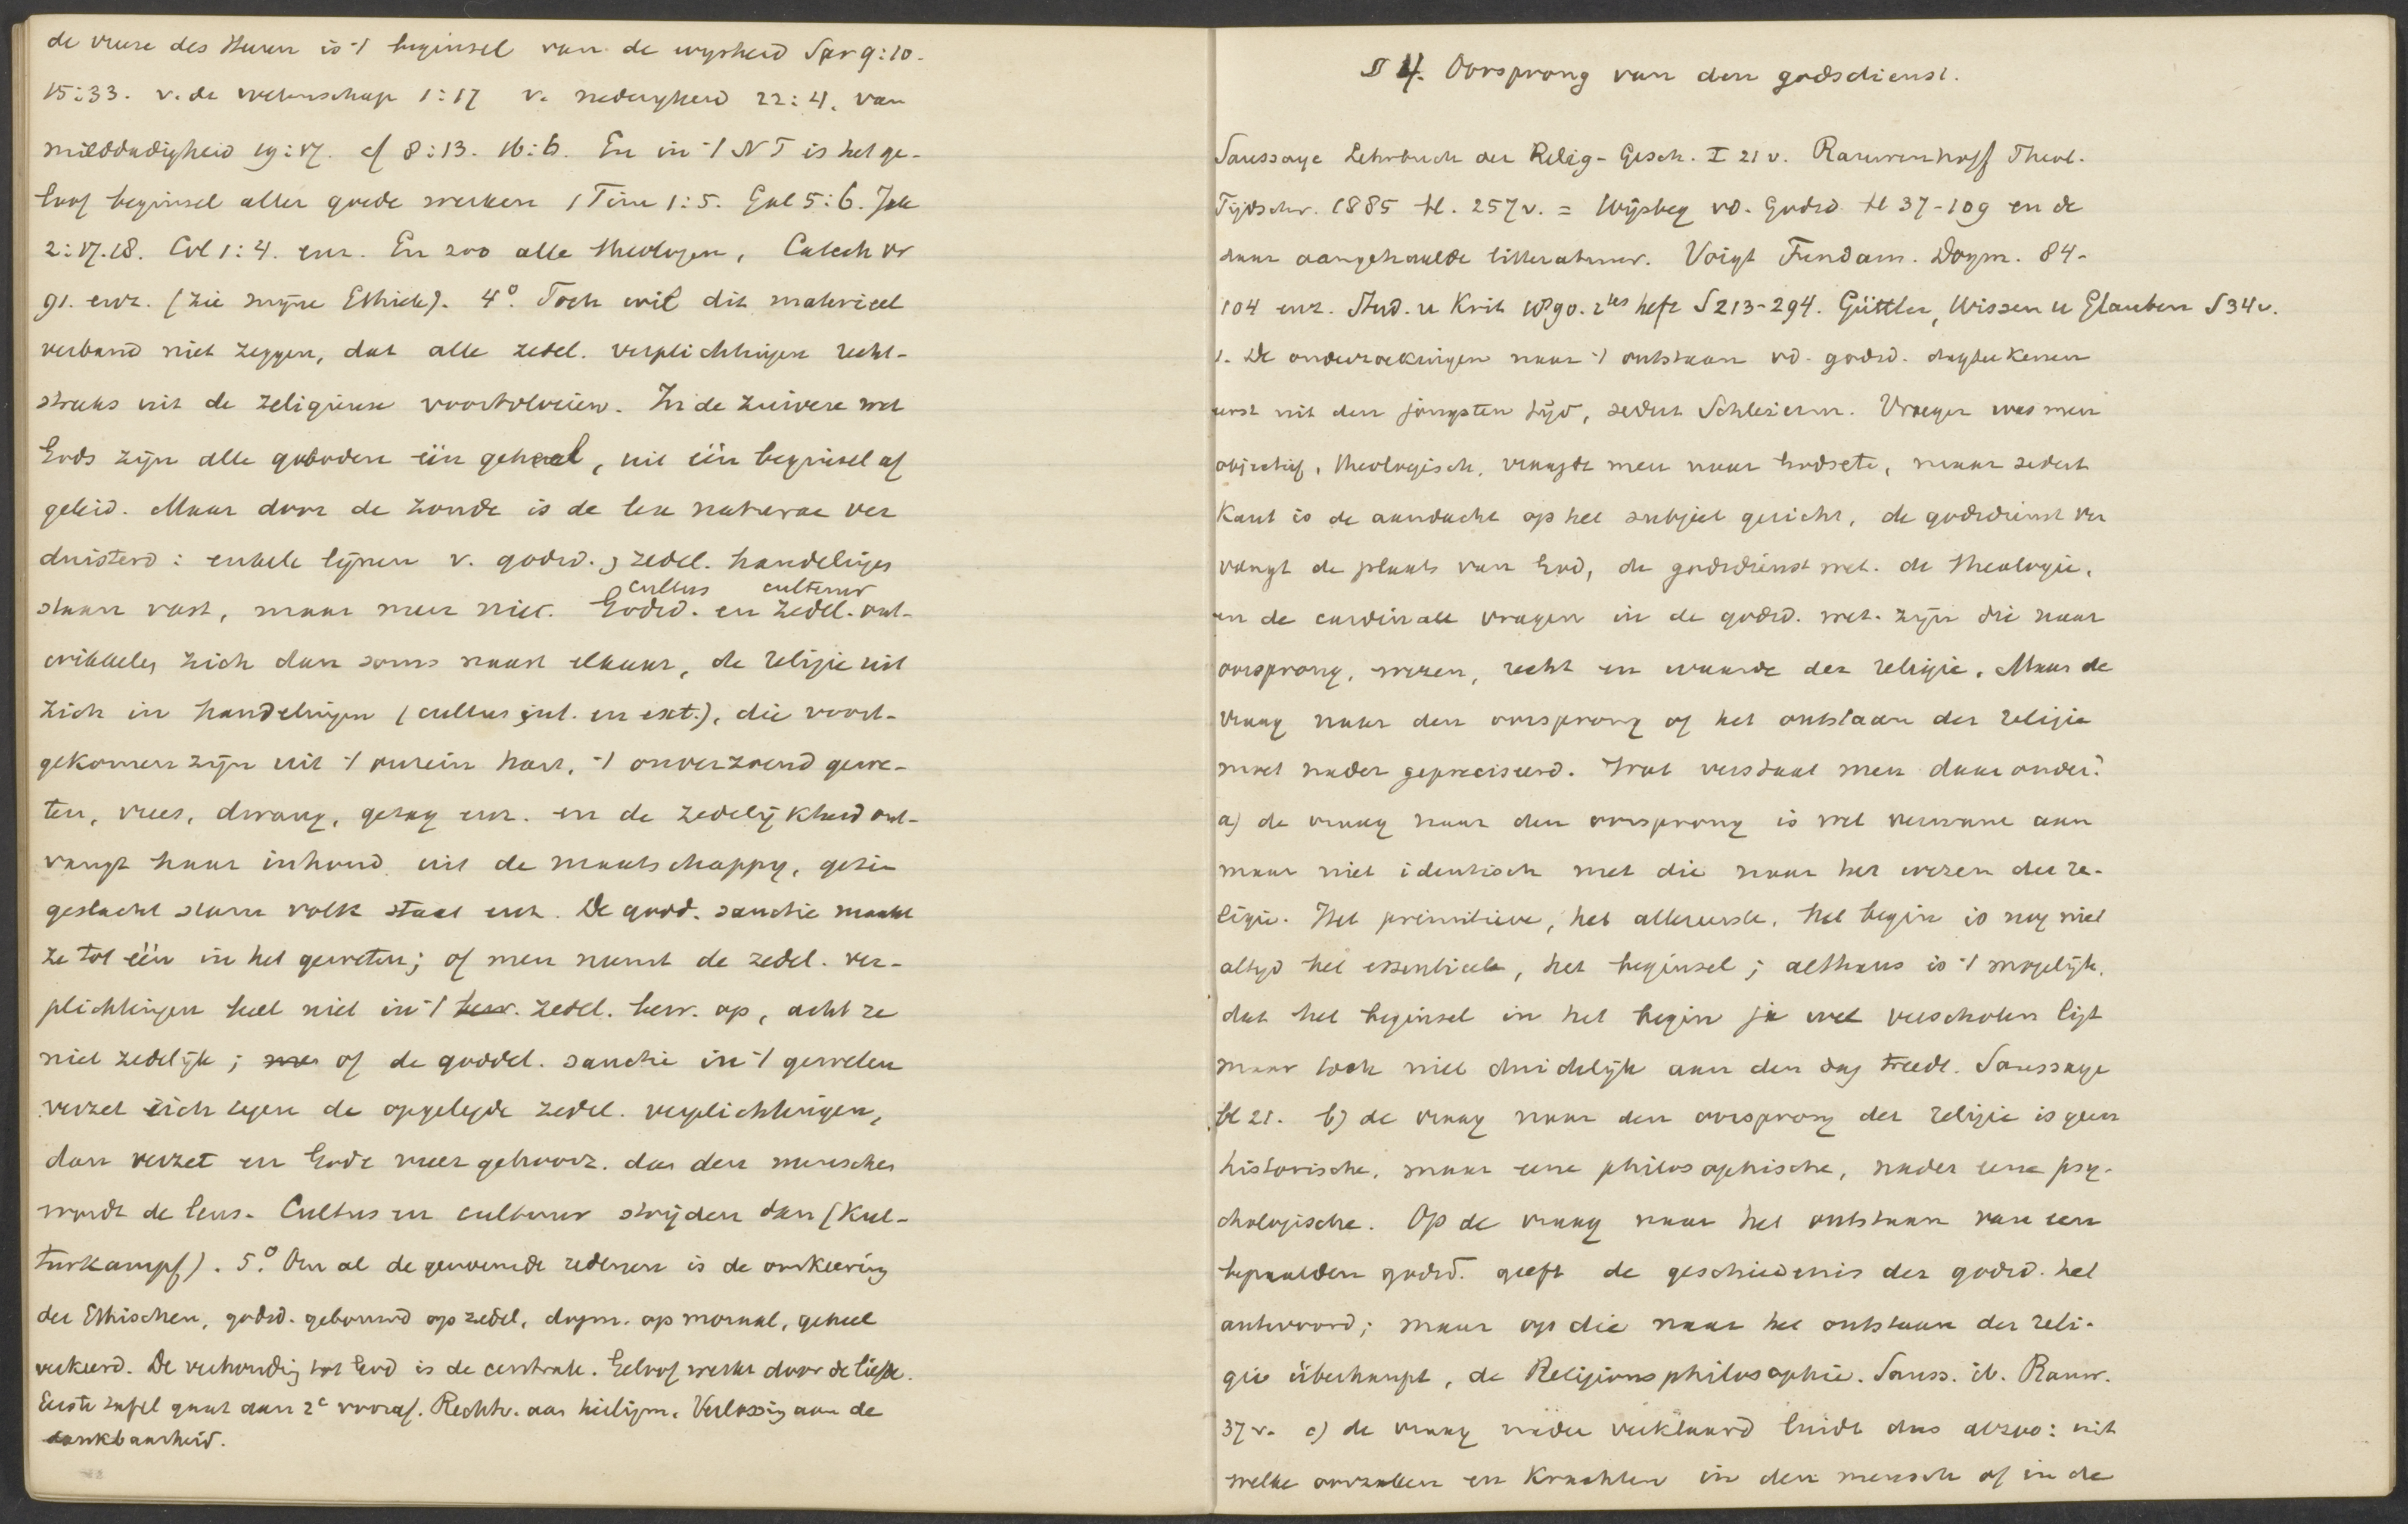 de vreze des Heeren is 't beginsel van de wysheid Spr 9:10.
15:33. v. de wetenschap 1:17 v. nederigheid 22:4. van
milddadigheid 19:17. cf 8:13. 16:6. En in 't NT is het ge-
loof beginsel aller goede werken 1 Tim 1:5. Gal 5:6. Jak
2:17.18. Col 1:4. enz. En zoo alle theologen, Catech vr
91. enz. (zie mijne Ethiek). 4°. Toch wil dit materieel
verband niet zeggen, dat alle zedel. verplichtingen recht-
streeks uit de religieuse voortvloeien. In de zuivere wet
Gods zijn alle geboden één geheel, uit één beginsel af
geleid. Maar door de zonde is de lex naturae ver
duisterd: enkele lijnen v. godsd. & zedel. handelingen
cultus cultuur
staan vast, maar meer niet. Godsd. en zedel. ont-
wikkelen zich dan soms naast elkaar, de religie uit
zich in handelingen (cultus int. en ext.), die voort-
gekomen zijn uit 't onrein hart, 't onverzoend gewe-
ten, vrees, dwang, gezag enz. en de zedelijkheid ont-
vangt haar inhoud uit de maatschappy, gezin
geslacht stam volk staat enz. De godd. sanctie maakt
ze tot één in het geweten; of men neemt de zedel. ver-
plichtingen heel niet in 't bew. zedel. bew. op, acht ze
niet zedelijk; of de goddel. sanctie in 't geweten
verzet zich tegen de opgelegde zedel. verplichtingen,
dan verzet en Gode meer gehoorz. dan den menschen
wordt de leus. Cultus en cultuur strijden dan (Kul-
turkampf). 5°. Om al de genoemde redenen is de omkeering
der Ethischen, godsd. gebouwd op zedel, dogm. op moraal, geheel
verkeerd. De verhouding tot God is de centrale. Geloof werkt door de liefde.
Eerste tafel gaat aan 2e vooraf. Rechtv. aan heiligm. Verlossing aan de
dankbaarheid.
§ 4. Oorsprong van den godsdienst.
Saussaye Lehrbuch der Relig-Gesch. I 21 v. Rauwenhoff Theol.
Tijdschr. 1885 bl. 257 v. = Wijsbeg vd. Godsd. bl 37-109 en de
daar aangehaalde litteratuur. Voigt Fundam. Dogm. 84-
104 enz. Stud. u Krit 1890. 2tes heft S 213-294. Güttler, Wissen u Glauben S 34 v.
1. De onderzoekingen naar 't ontstaan vd. godsd. dagteekenen
eerst uit den jongsten tijd, sedert Schleierm. Vroeger was men
objectief, theologisch, vraagde men naar Gods ere, maar sedert
Kant is de aandacht op het subject gericht, de godsdienst ver
vangt de plaats van God, de godsdienst wet. de theologie,
en de cardinale vragen in de godsd. wet. zijn die naar
oorsprong, wezen, recht en waarde der religie. Maar de
vraag naar den oorsprong of het ontstaan der religie
moet nader gepreciseerd. Wat verstaat men daaronder?
a) de vraag naar den oorsprong is wel verwant aan
maar niet identisch met die naar het wezen der re-
ligie. Het primitieve, het allereerste, het begin is nog niet
altyd het essentieele, het beginsel; althans is 't mogelijk,
dat het beginsel in het begin ja wel verscholen ligt
maar toch niet duidelijk aan den dag treedt. Saussaye
bl 21. b) de vraag naar den oorsprong der religie is geen
historische, maar eene philosophische, nader eene psy-
chologische. Op de vraag naar het ontstaan van een
bepaalden godsd. geeft de geschiedenis der godsd. het
antwoord; maar op die naar het ontstaan der reli-
gie überhaupt, de Religionsphilosophie. Sauss. ib. Rauw.
37 v. c) de vraag nader verklaard luidt dus alzoo: uit
welke oorzaken en krachten in den mensch of in de